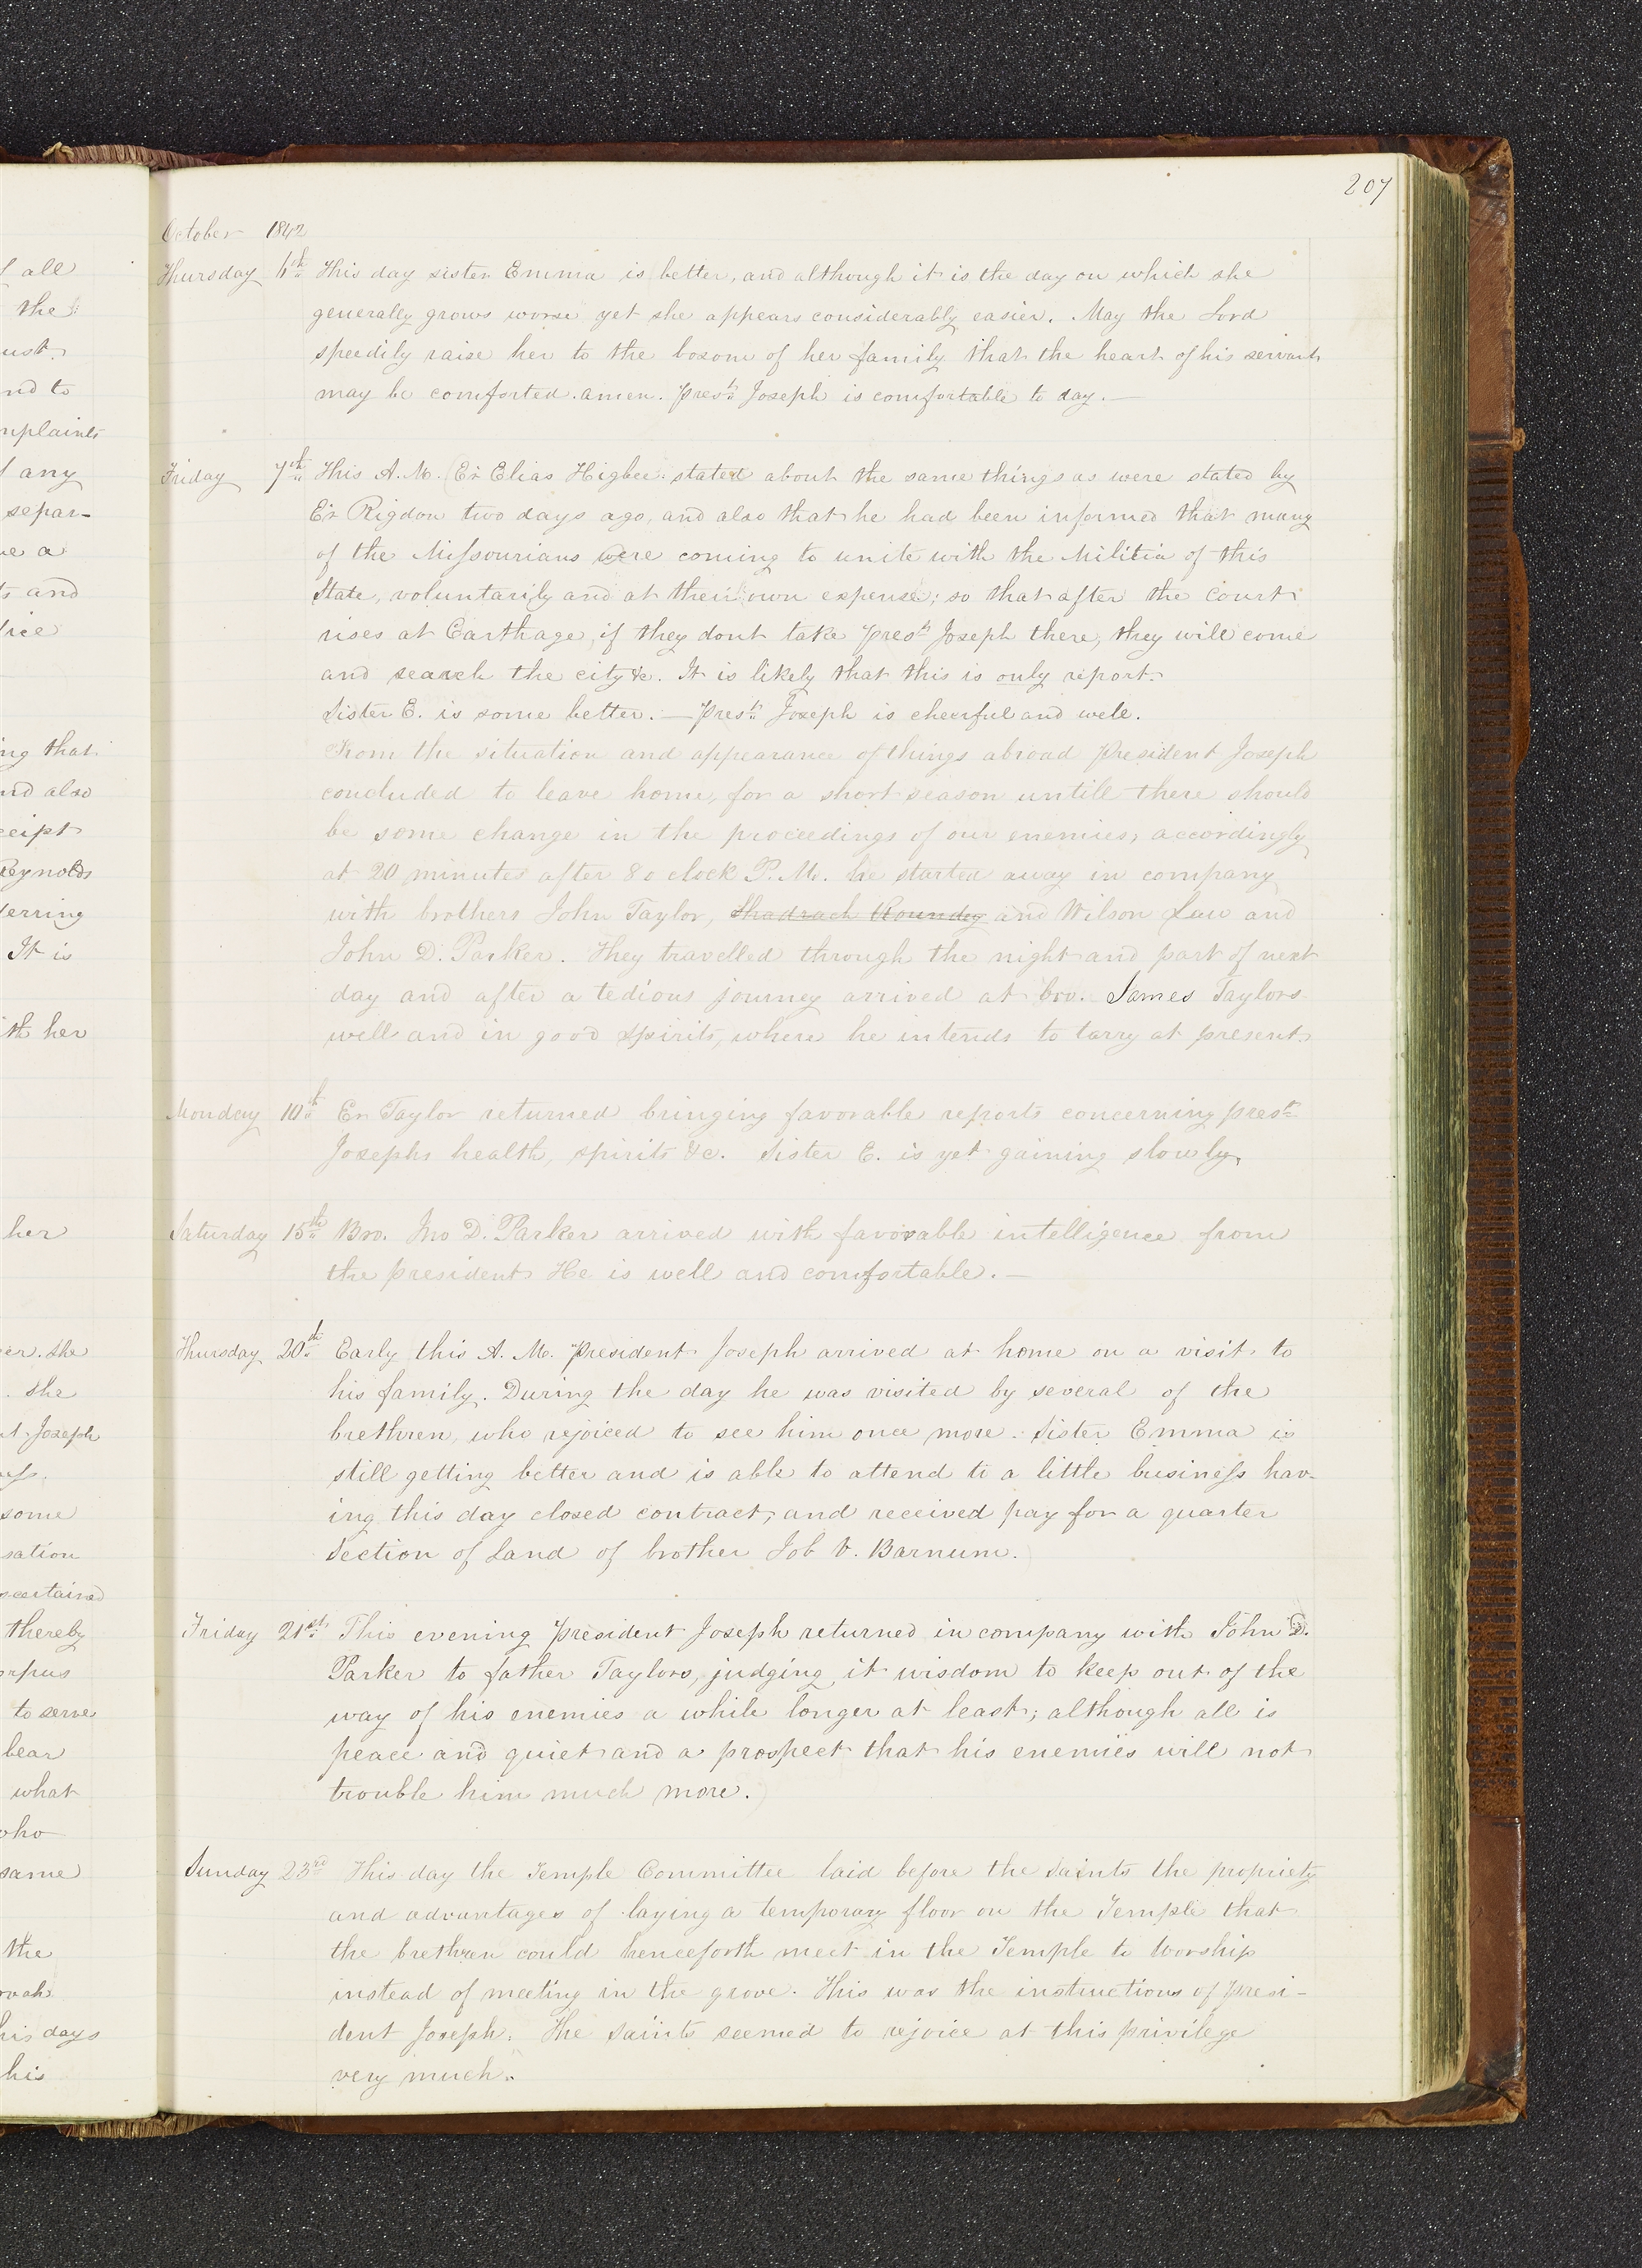 207
October 1842
Thursday 6th This day sister Emma is better, and although it is the day on which she
generally grows worse yet she appears considerably easier. May the Lord
speedily raise her to the bosom of her family that the heart of his servant
may be comforted. amen. Prest. Joseph is comfortable to day.—
Friday 7th This A.M. Er Elias Higbee stated about the same things as were stated by
Er Rigdon two days ago, and also that he had been informed that many
of the Missourians were coming to unite with the Militia of this
State, voluntarily and at their own expense; so that after the court
rises at Carthage, if they dont take prest. Joseph there, they will come
and search the city &c. It is likely that this is only report.
Sister E. is some better.— Prest. Joseph is cheerful and well.
From the situation and appearance of things abroad President Joseph
concluded to leave home, for a short season untill there should
be some change in the proceedings of our enemies, accordingly
at 20 minutes after 8 o clock P.M. he started away in company
with brothers John Taylor, Shadrach Roundy and Wilson Law and
John D. Parker. They travelled through the night and part of next
day and after a tedious journey arrived at bro. James Taylors
well and in good spirits, where he intends to tarry at present.
Monday 10th Er Taylor returned bringing favorable reports concerning prest.
Josephs health, spirits &c. Sister E. is yet gaining slowly.
Saturday 15th Bro. Jno D. Parker arrived with favorable intelligence from
the president He is well and comfortable.—
Thursday 20th Early this A.M. President Joseph arrived at home on a visit to
his family. During the day he was visited by several of the
brethren, who rejoiced to see him once more. Sister Emma is
still getting better and is able to attend to a little business hav-
ing this day closed contract, and received pay for a quarter
Section of Land of brother Job V. Barnum.
Friday 21st This evening President Joseph returned in company with John D.
Parker to father Taylors, judging it wisdom to keep out of the
way of his enemies a while longer at least; although all is
peace and quiet and a prospect that his enemies will not
trouble him much more.
Sunday 23rd This day the Temple Committee laid before the Saints the propriety
and advantages of laying a temporary floor on the Temple that
the brethren could henceforth meet in the Temple to worship
instead of meeting in the grove. This was the instructions of Presi-
dent Joseph. The Saints seemed to rejoice at this privilege
very much.